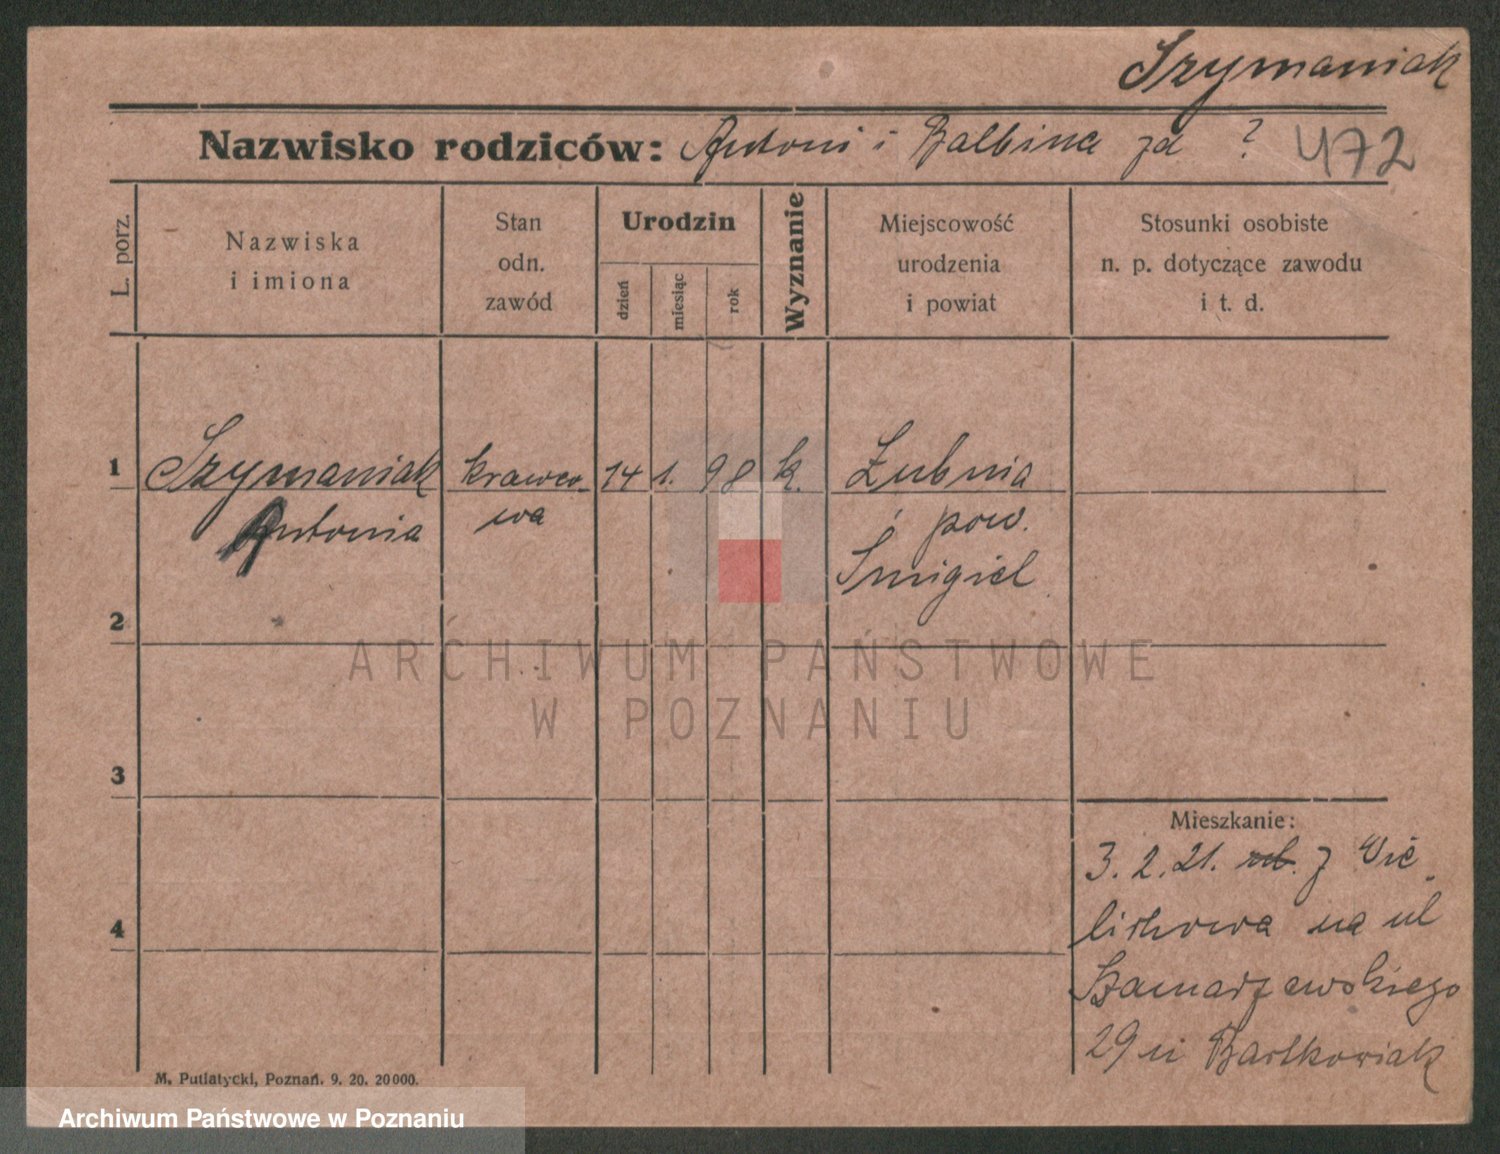 Szymaniak
Nazwisko rodziców: Antoni i Balbina zd ? 472
L. porz.
Nazwiska
i imiona
Stan
odn.
zawód
Urodzin
dzień
miesiąc
rok
Wyznanie
Miejscowość
urodzenia
i powiat
Stosunki osobiste
n. p. dotyczące zawodu
i t. d.
1 Szymaniak krawco- 14 1. 98 k. Żubnia
Antonia wa pow.
Śmigiel
2
3
4
Mieszkanie:
3. 2. 21. z Wie-
lichowa na ul
Szamarzewskiego
29 u Bartkowiak
M. Putiatycki, Poznań. 9. 20. 20000.
ARCHIWUM PAŃSTWOWE
W POZNANIU
Archiwum Państwowe w Poznaniu